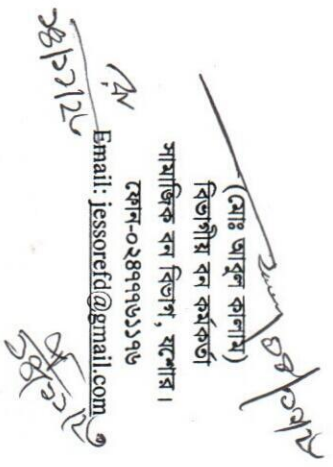 (মোঃ আবুল কালাম)
বিভাগীয় বন কর্মকর্তা
সামাজিক বন বিভাগ, যশোর।
ফোন-০২৪৭৭৭৬১১৭৬
Email: jessorefd@gmail.com